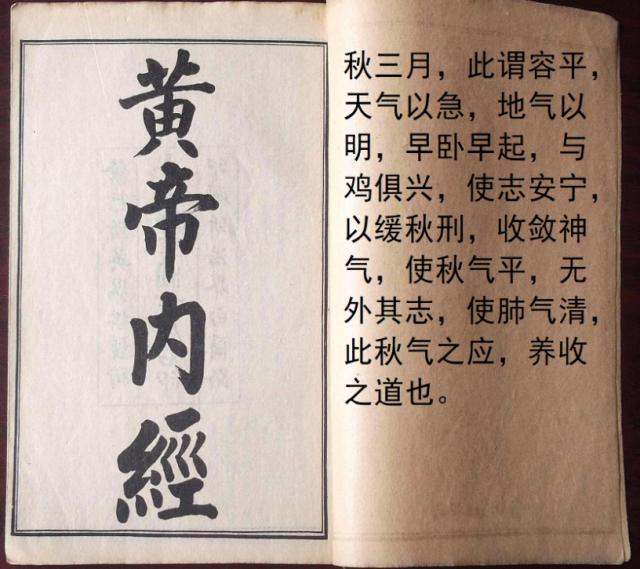 黄帝内經
秋三月，此谓容平，
天气以急，地气以
明，早卧早起，与
鸡俱兴，使志安宁，
以缓秋刑，收敛神
气，使秋气平，无
外其志，使肺气清，
此秋气之应，养收
之道也。